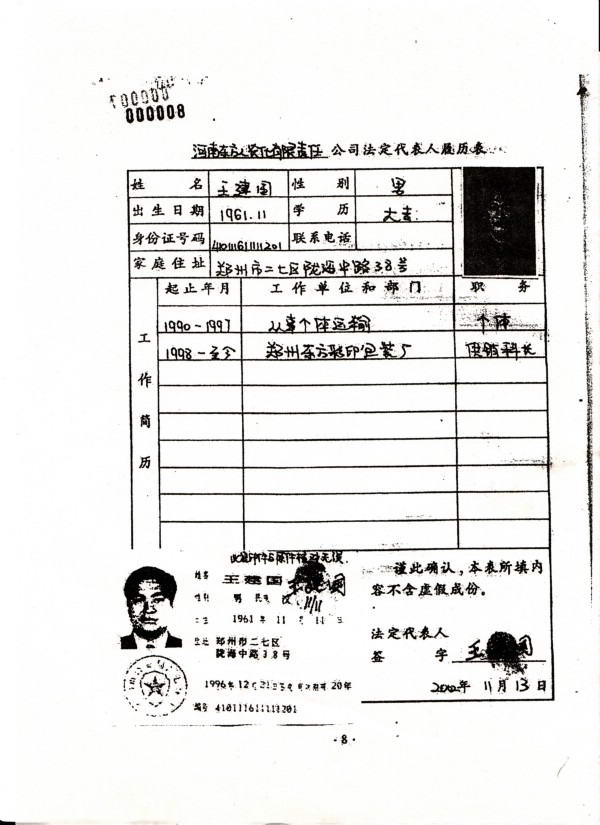 000008
公司法定代表人履历表
姓 名 王建国 性 别 男
出生日期 1961.11 学 历 大专
身份证号码 410111611111201 联系电话
家庭住址 郑州市二七区陇海中路38号
工作简历
起止年月 工作单位和部门 职 务
1990-1997 从事个体运输 个体
1998-至今 郑州东方彩印包装厂 供销科长
姓名 王建国
性别 男 民族 汉
1961 年 11 月 11 日
住址 郑州市二七区
陇海中路38号
1996年12月 20年
编号 410111611111201
谨此确认，本表所填内
容不含虚假成份。
法定代表人
签 字
2002年 11月 13日
·8·